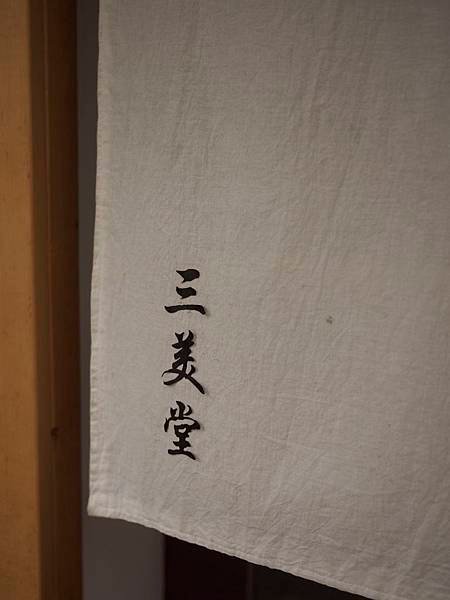 三美堂